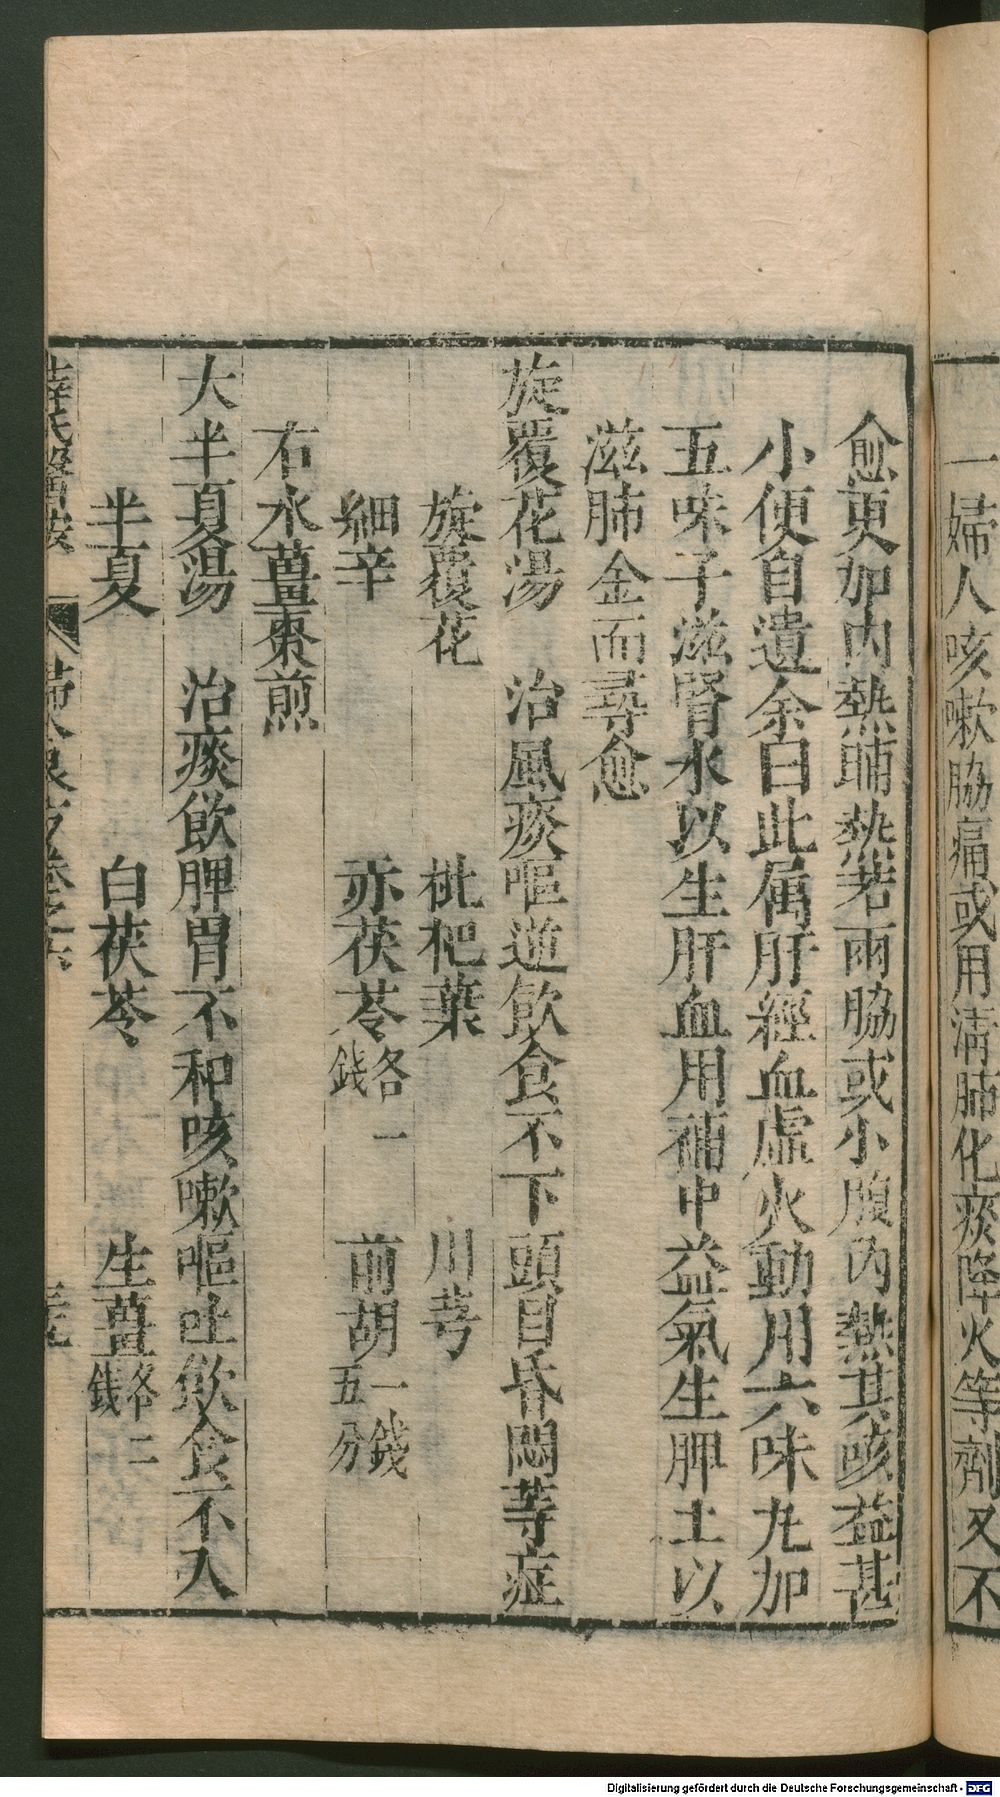 一婦人咳嗽脇痛或用清肺化痰降火等劑又不
愈更加内熱晡熱若兩脇或小腹内熱其咳益甚
小便自遺余曰此属肝經血虚火動用六味丸加
五味子滋腎水以生肝血用補中益氣生脾土以
滋肺金而尋愈
旋覆花湯　治風痰嘔逆飲食不下頭目昏悶等症
旋覆花　枇杷葉　川芎
細辛　赤茯苓各一錢　前胡一錢五分
右水薑棗煎
大半夏湯　治痰飲脾胃不和咳嗽嘔吐飲食不入
半夏　白茯苓　生薑各二錢
薛氏醫按　婦人良方卷之六
Digitalisierung gefördert durch die Deutsche Forschungsgemeinschaft - DFG